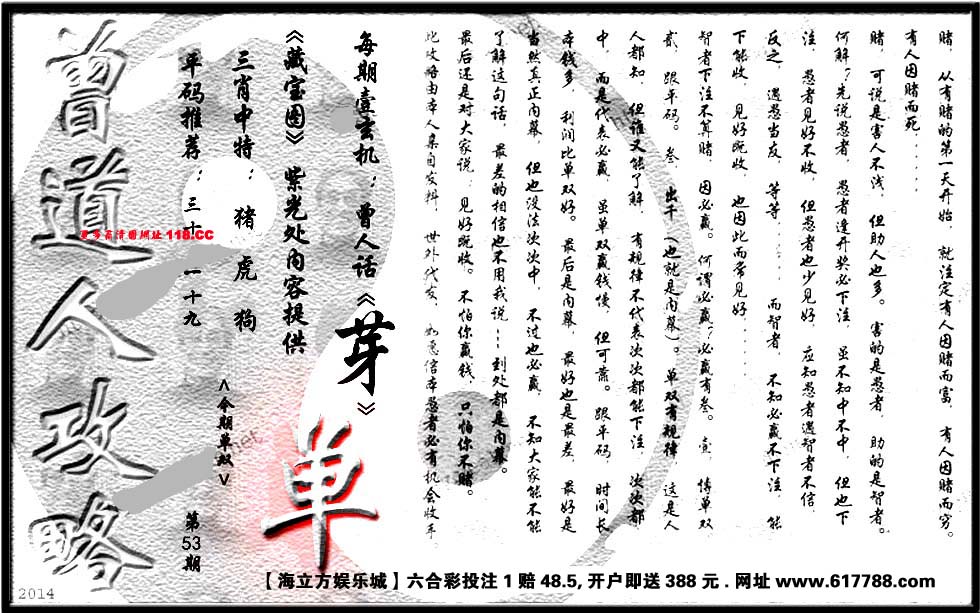 赌，从有赌的第一天开始，就注定有人因赌而富，有人因赌而穷。
有人因赌而死．．．．．．
赌，可说是害人不浅，但助人也多。害的是愚者，助的是智者。
何解？先说愚者，愚者逢开奖必下注，虽不知中不中，但也下
注，愚者见好不收，但愚者也少见好，应知愚者遇智者不信，
反之，遇愚当友，等等．．．．．．而智者，不知必赢不下注，能
下能收，见好既收，也因此而常见好．．．．．．
智者下注不算赌，因必赢。何谓必赢？必赢有叁。壹，博单双，
贰，跟平码。叁，出千（也就是内幕）。单双有规律，这是人
人都知，但谁又能了解，有规律不代表次次都能下注，次次都
中，而是代表必赢，虽单双赢钱慢，但可靠。跟平码，时间长，
本钱多，利润比单双好。最后是内幕，最好也是最差，最好是
当然真正内幕，但也没法次次中，不过也必赢，不知大家能不能
了解这句话，最差的相信也不用我说---到处都是内幕。
最后还是对大家说：见好既收。不怕你赢钱，只怕你不赌。
此攻略由本人亲自发料，世外代友，如愿信本愚者必有机会收手。
每期壹玄机：曾人话《芽》
《藏宝图》紫光处内容提供
三肖中特：猪 虎 狗
平码推荐：三十 一十九
<今期单双>
单
第53期
曾道人攻略
更多高清图网址118.CC
【海立方娱乐城】六合彩投注1赔48.5,开户即送388元.网址www.617788.com
2014